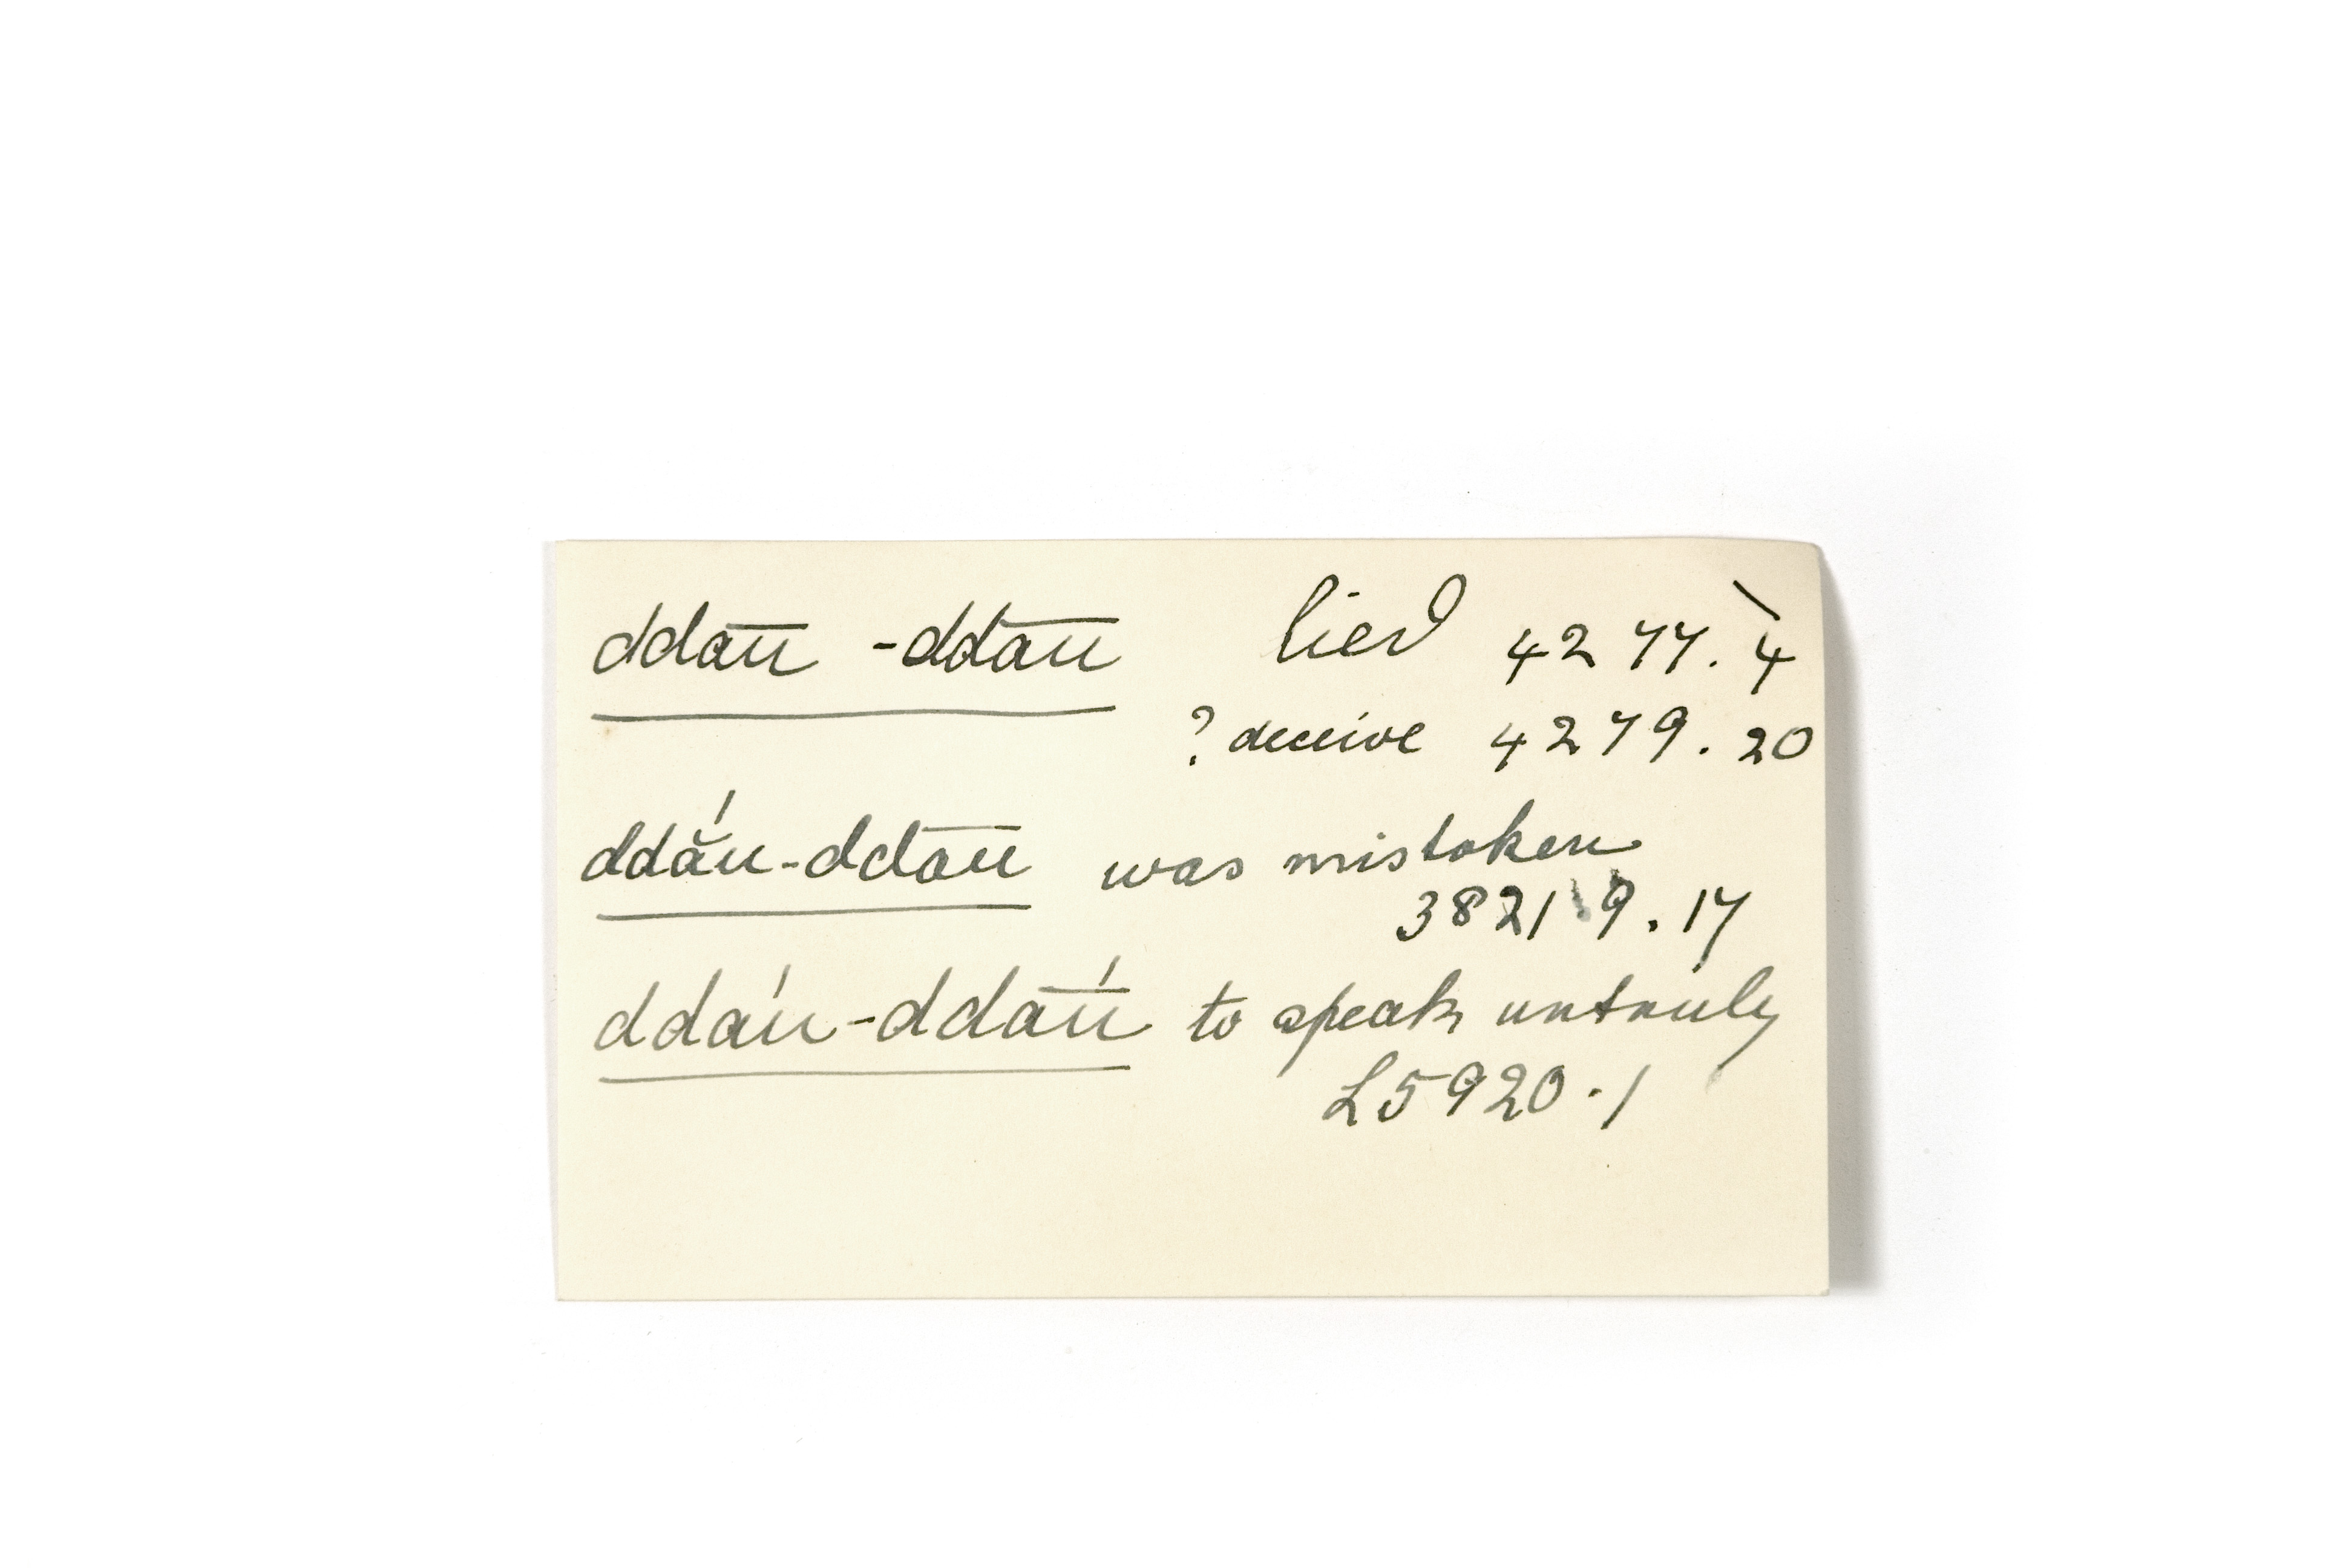 ddau̅ -ddau̅ lied 4277.4
? deceive 4279.20
ddắu-ddau̅ was mistaken
3821 9.17
ddáu-ddaú̅ to speak untruly
L5920.1